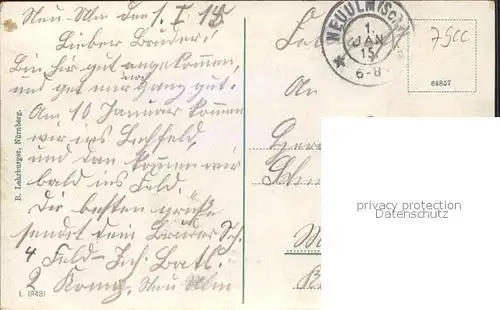 Neu-Ulm den 1. I 15
Lieber Bruder!
Bin hir gut angekommen,
und get mir noch ganz gut.
Am 10 Januar kommen
wir ins Lechfeld,
und dan kommen wir
bald ins Feld.
Die besten Grüße
sendet dein Bruder Sch.
4 Feld-
2 Komp. Neu Ulm
B. Lehrburger, Nürnberg.
L 19481
NEUULM
1.
JAN
15
6-8
79cc
64857
An
privacy protection
Datenschutz